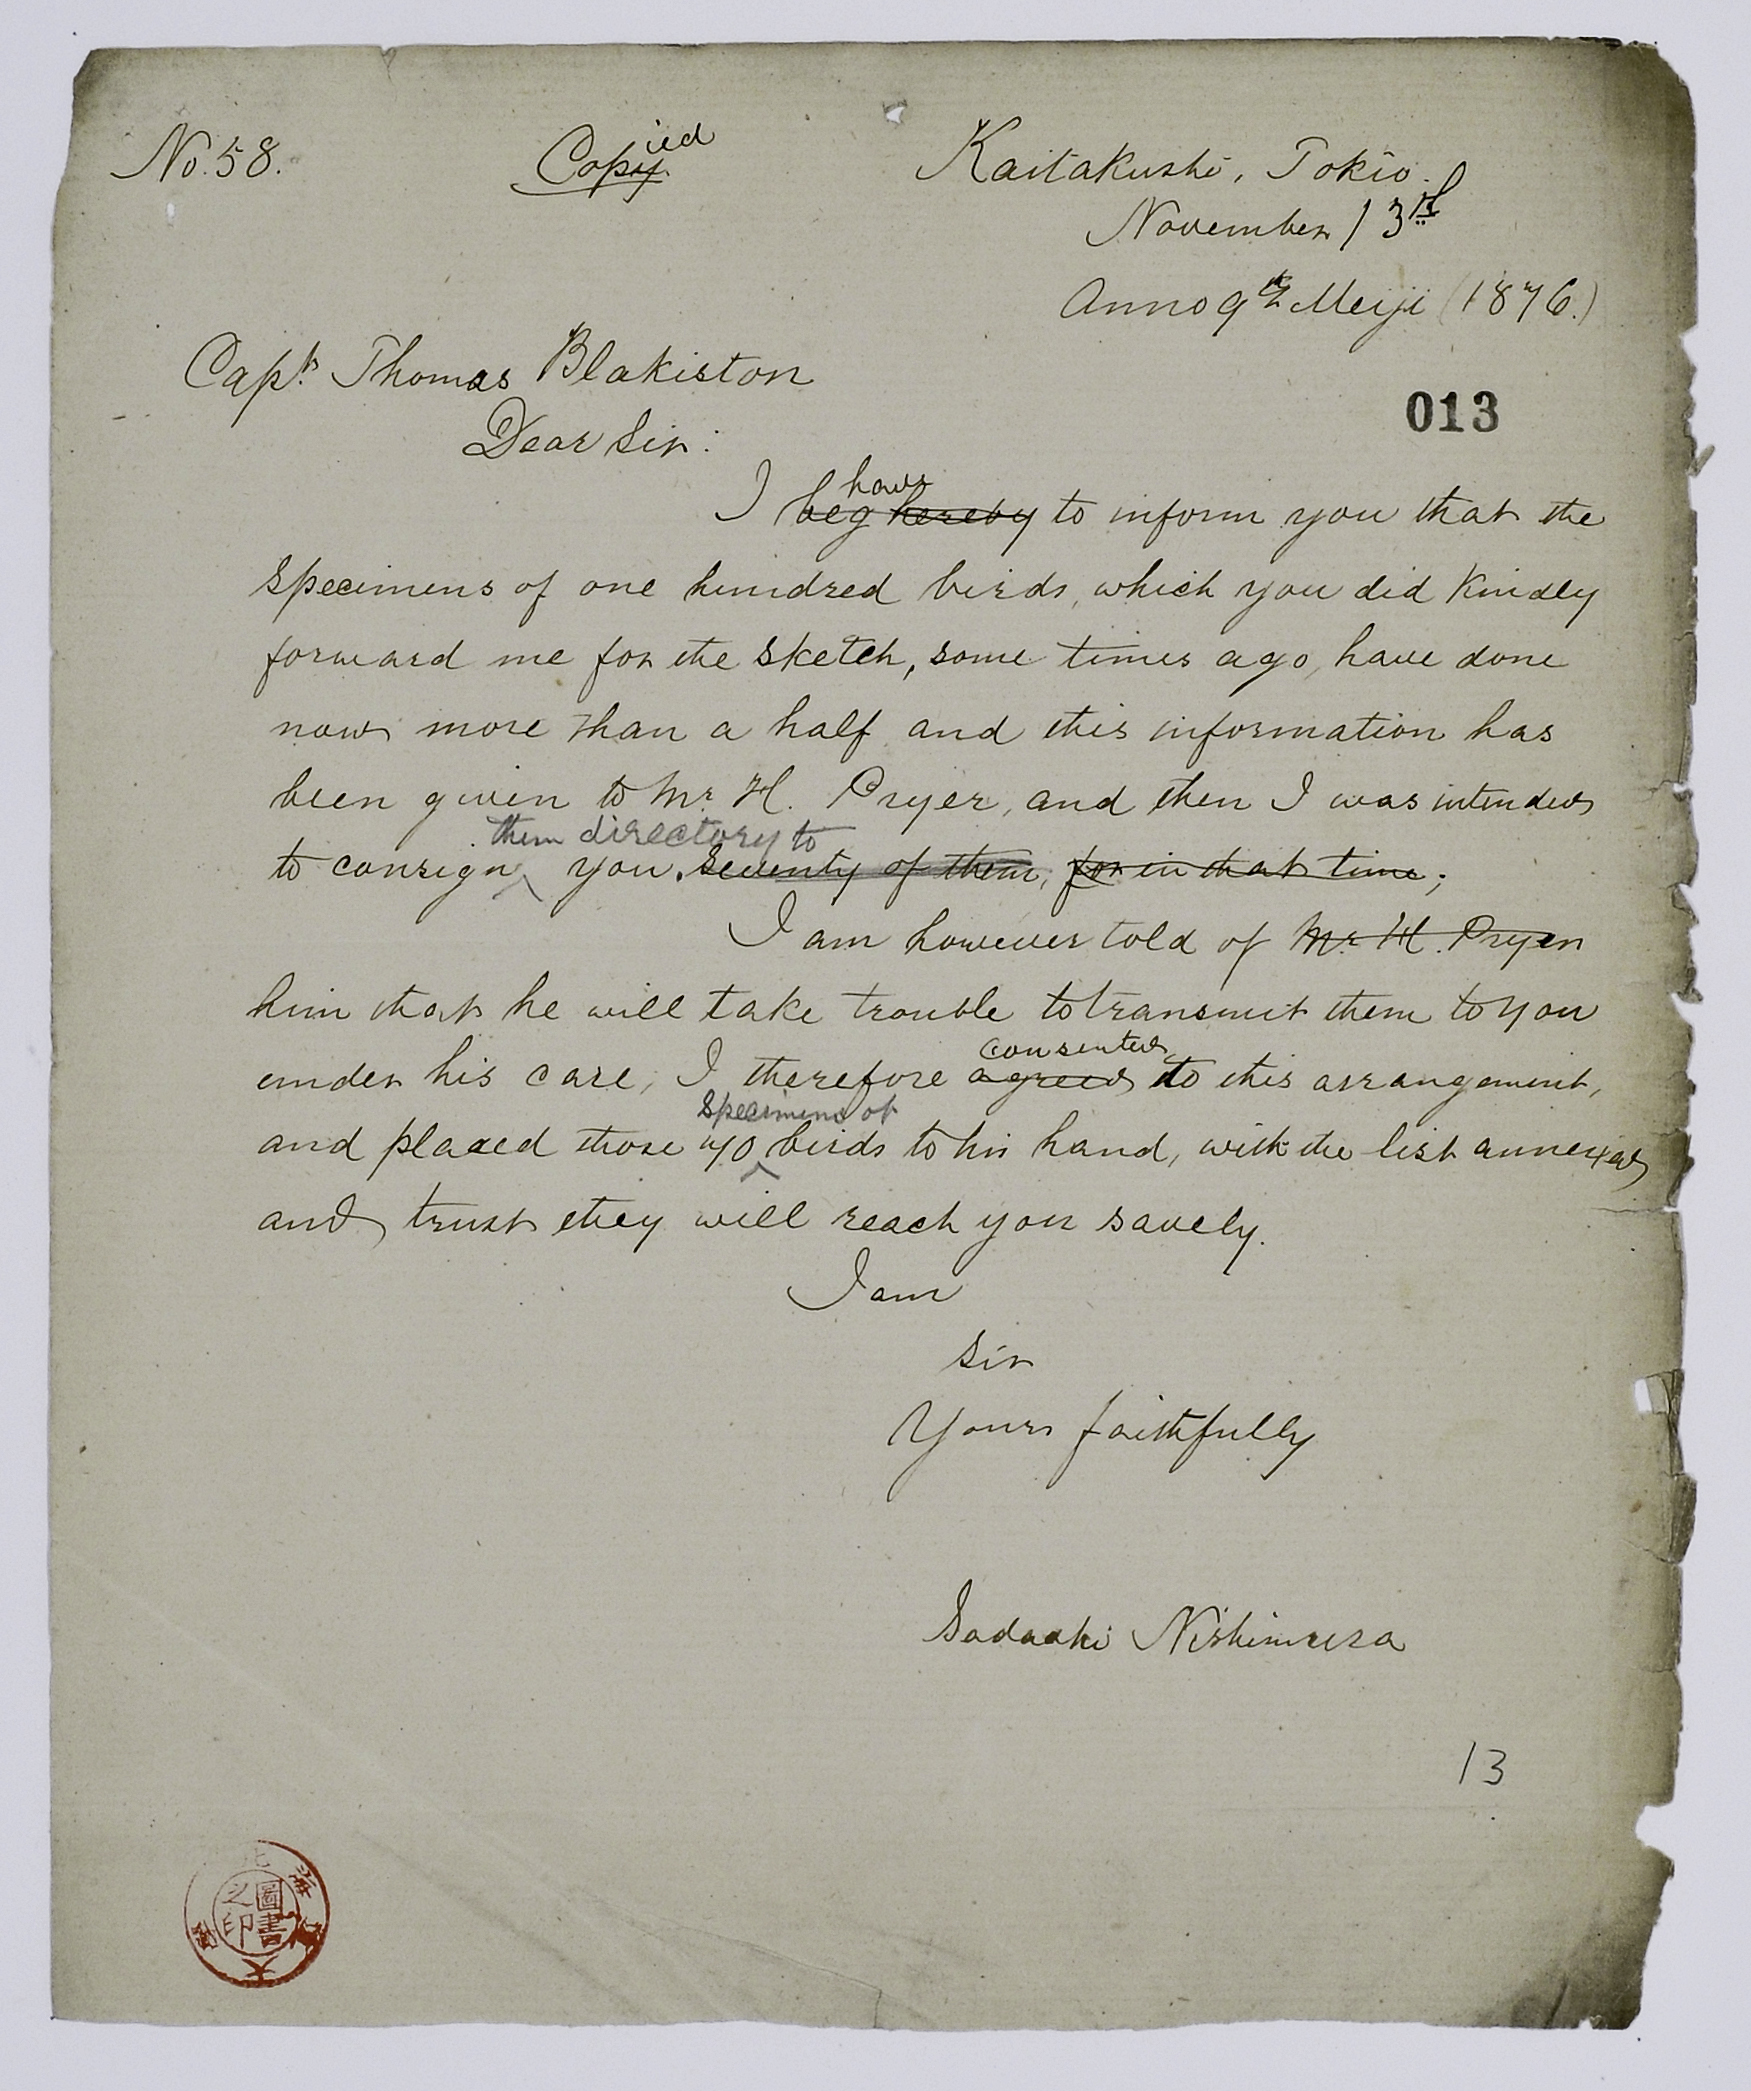 No. 58. Copyied Kaitakushi, Tokio.
November 13th
Anno 9th Meiji (1876.)
Capt. Thomas Blakiston
013
Dear Sir:
have
I beg hereby to inform you that the
specimens of one hundred birds, which you did kindly
forward me for the sketch, some times ago, have done
now more than a half, and this information has
been given to Mr. H. Pryer, and then I was intended
them directory to
to consign you. seventy of them, for in that time;
I am however told of Mr. H. Pryer
him that he will take trouble to transmit them to you
consented
under his care, I therefore agreed to this arrangement,
specimens of
and placed those 70 birds to his hand, with the list annexed
and trust they will reach you savely.
I am
Sir
Yours faithfully
Sadaaki Nishimura
13
圖書之印